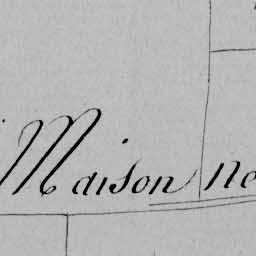 Maison ne